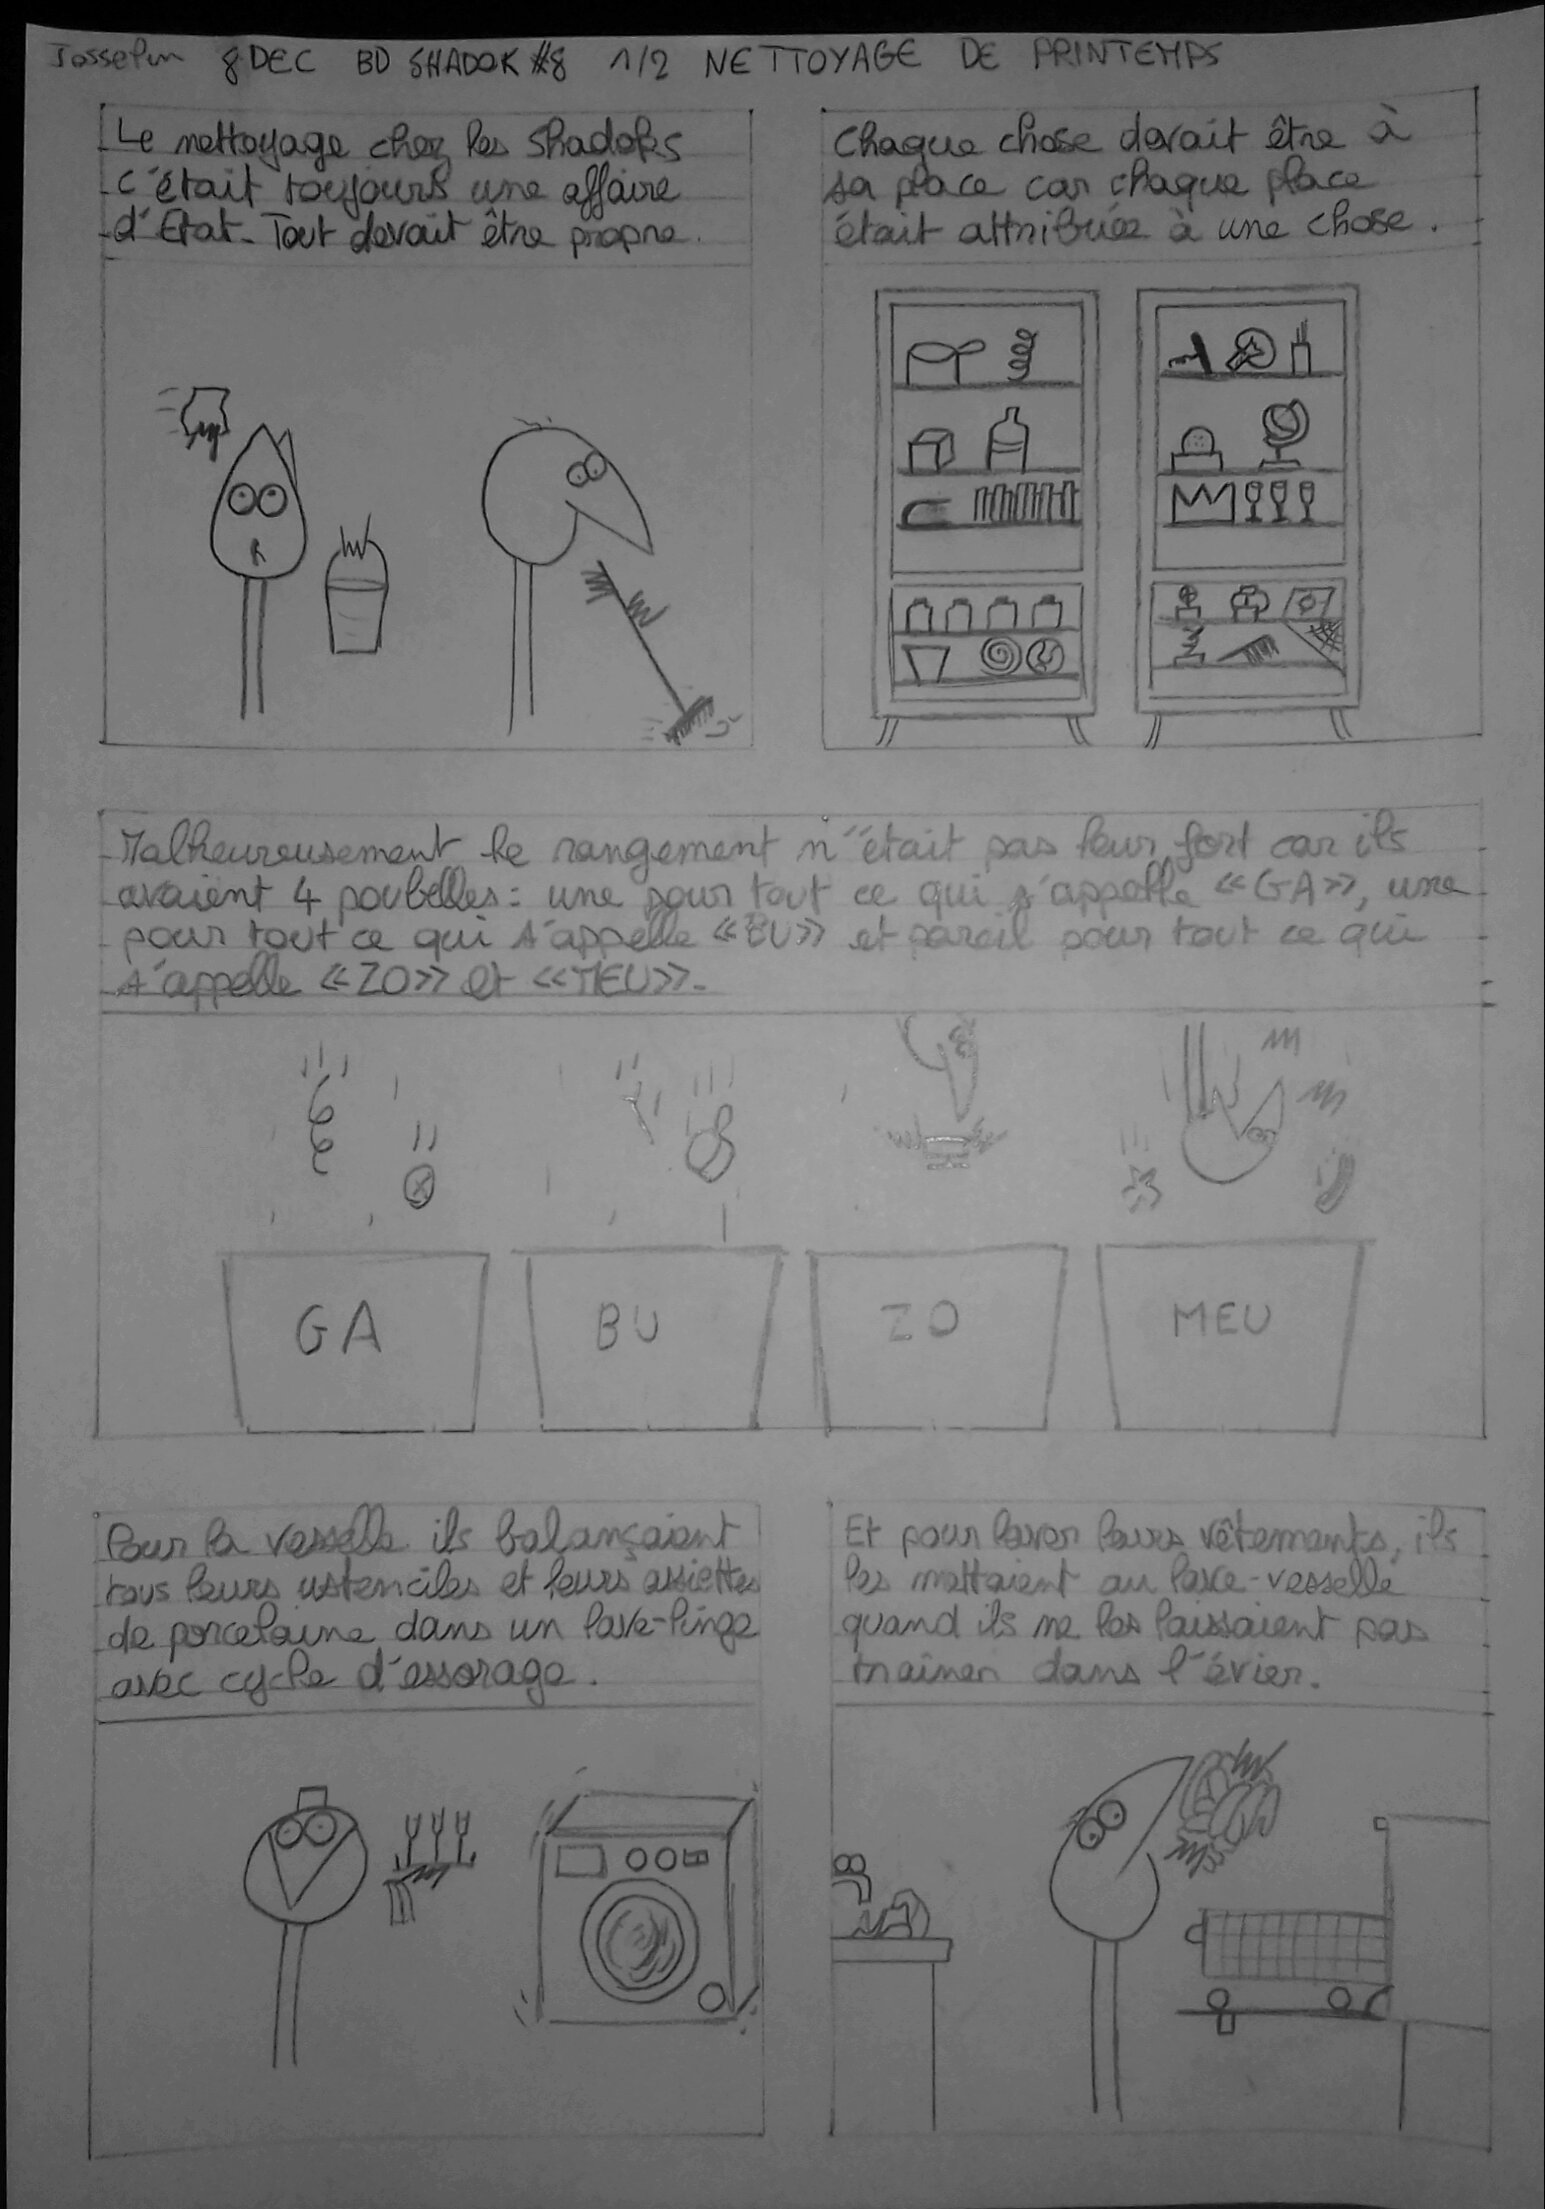 Josselin 8 DEC BD SHADOK #8 1/2 NETTOYAGE DE PRINTEMPS
Le nettoyage chez les Shadoks
c'était toujours une affaire
d'Etat. Tout devait être propre.
Chaque chose devait être à
sa place car chaque place
était attribuée à une chose.
Malheureusement le rangement n'était pas leur fort car ils
avaient 4 poubelles : une pour tout ce qui s'appelle «GA», une
pour tout ce qui s'appelle «BU» et pareil pour tout ce qui
s'appelle «ZO» et «MEU».
GA
BU
ZO
MEU
Pour la vesselle ils balançaient
tous leurs ustenciles et leurs assiettes
de porcelaine dans un lave-linge
avec cycle d'essorage.
Et pour laver leurs vêtements, ils
les mettaient au lave-vesselle
quand ils ne les laissaient pas
trainer dans l'évier.